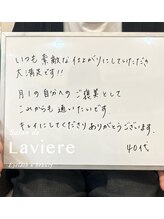 いつも素敵な仕上がりにしていただき
大満足です!!
月1の自分へのご褒美として
これからも通いたいです。
キレイにしてくださりありがとうございます
40代
Salon de
Laviere
Eyelash & Beauty